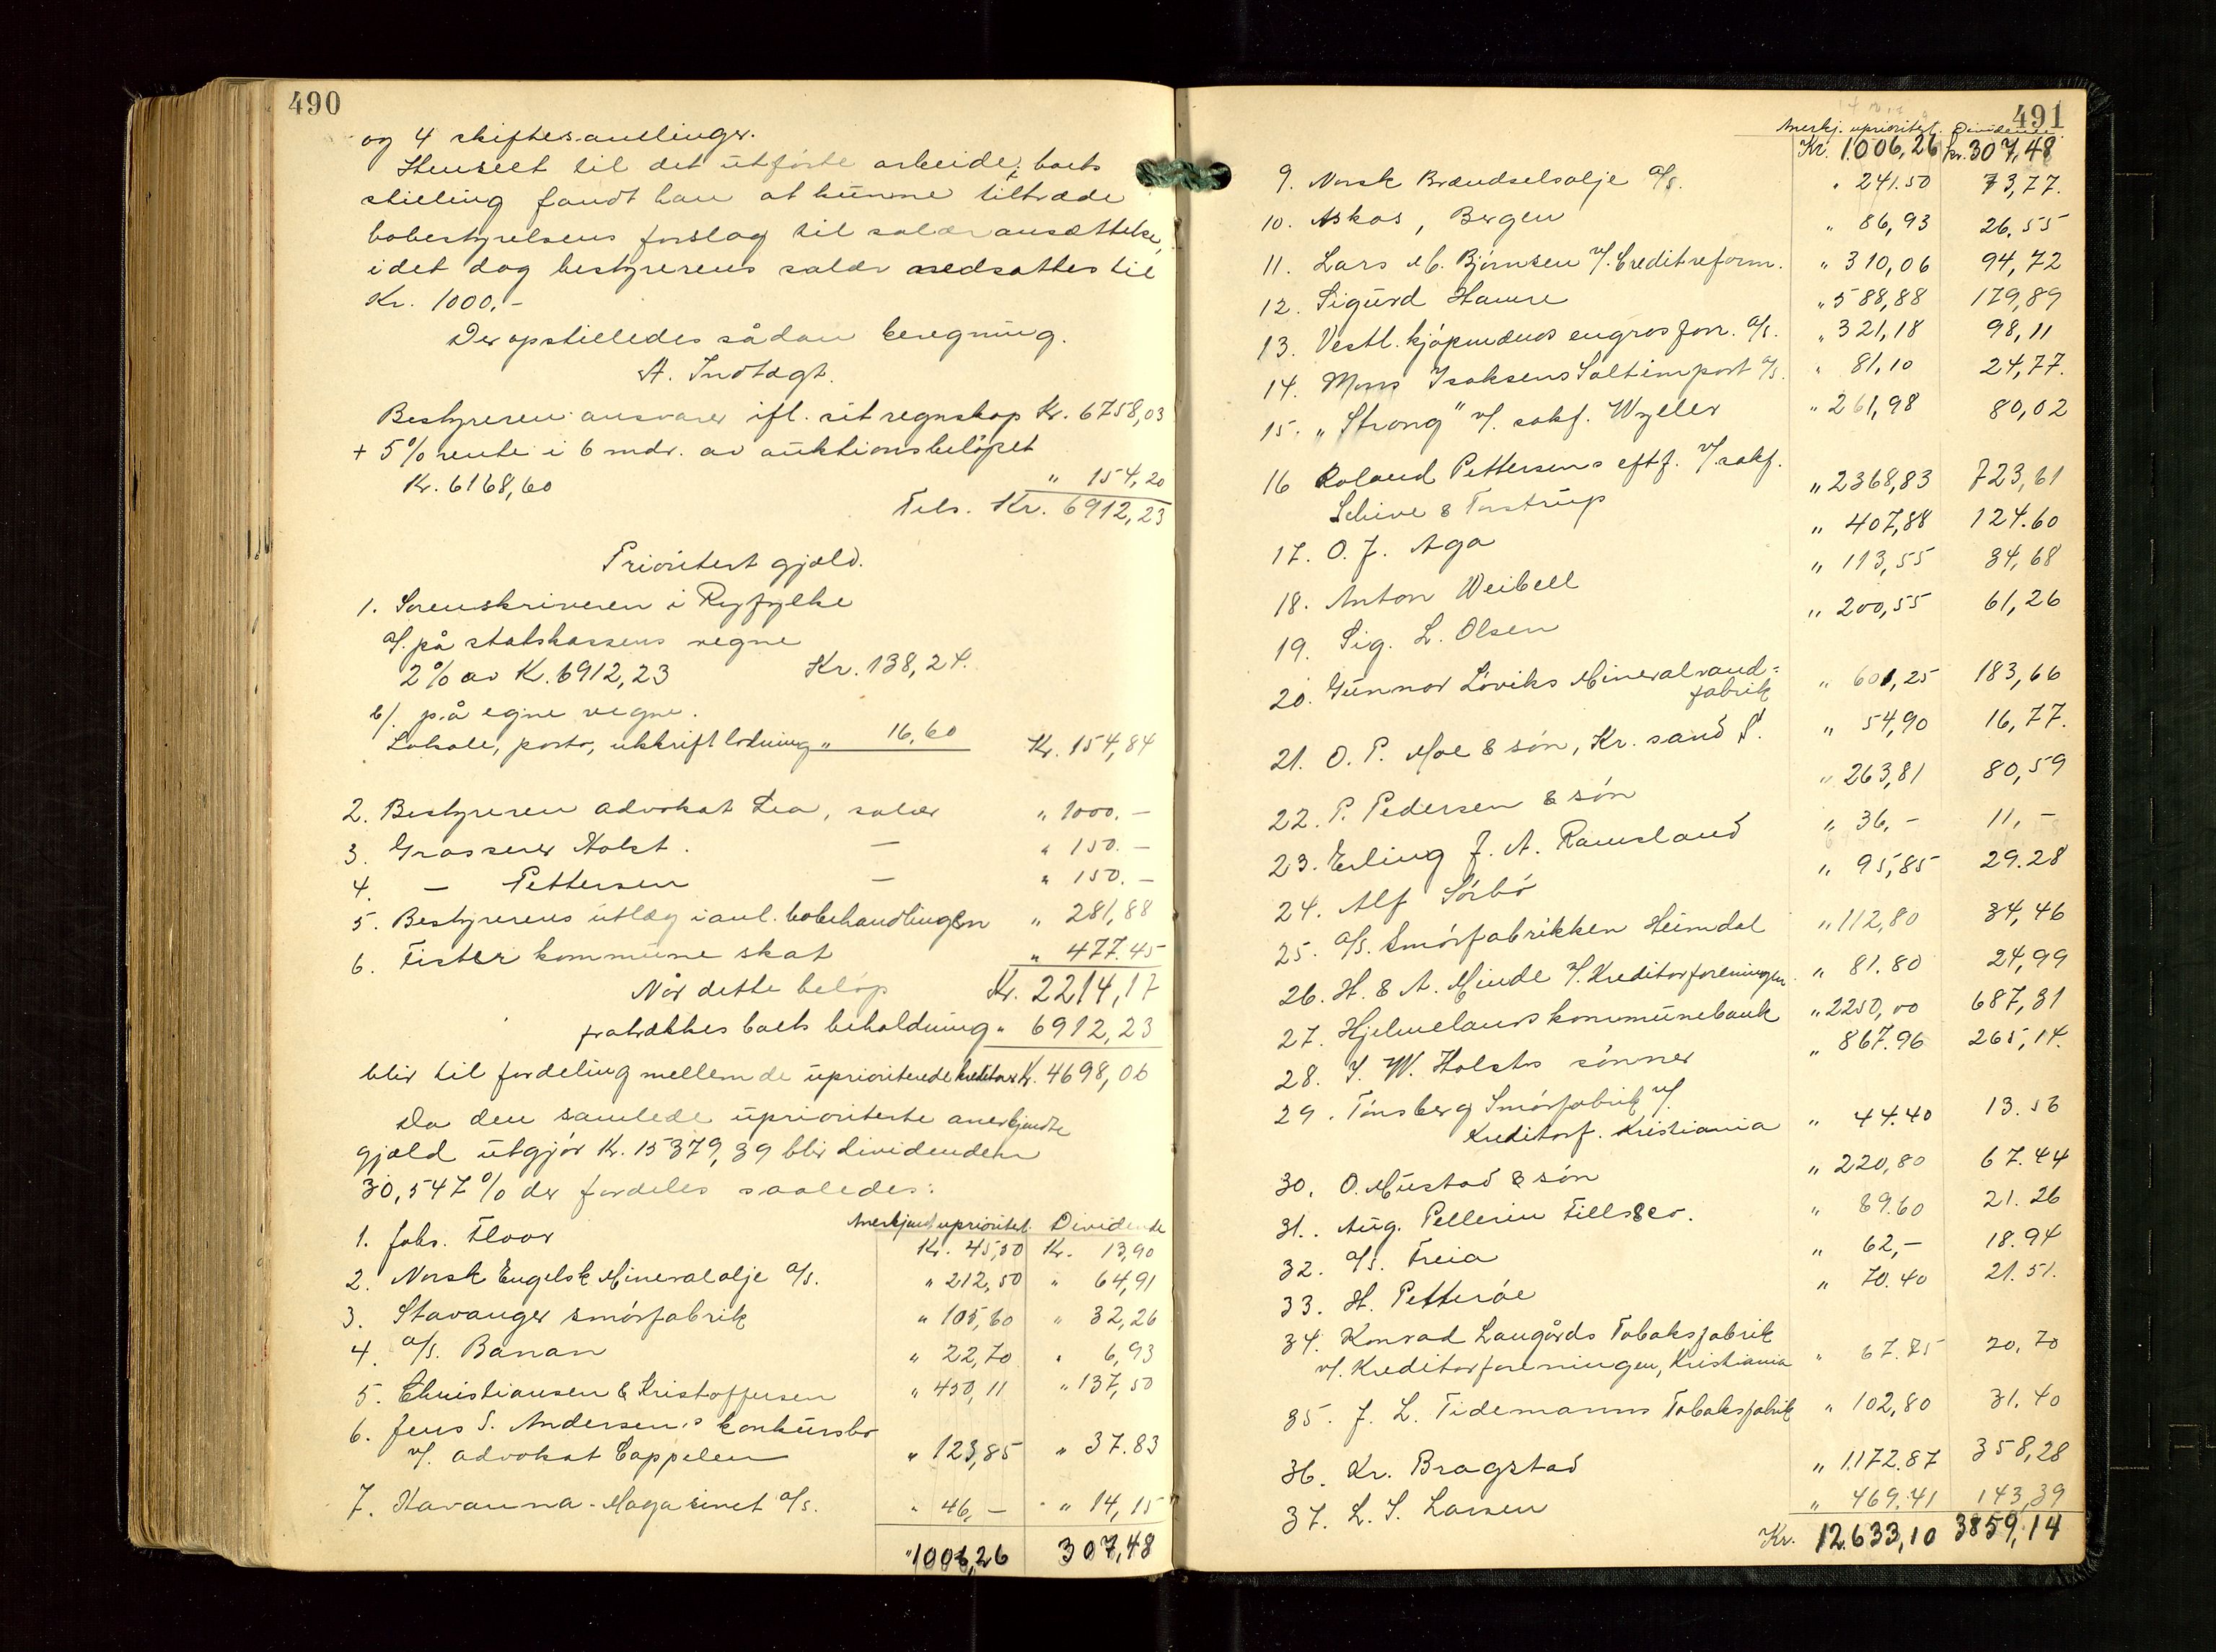 490
og 4 skiftesamlinger.
Henseet til det utførte arbeide, boets
stilling fandt han at kunne tiltræde
bobestyrelsens forslag til salæransættelse,
idet dog bestyrerens salær nedsattes til
Kr. 1000,-
Der opstilledes sådan beregning.
A. Indtægt.
Bestyreren ansvarer ifl. sit regnskap Kr. 6758,03
+ 5% rente i 6 mdr. av auktionsbeløpet
Kr. 6168,60 " 154,20
Tils. Kr. 6912,23
Prioritert gjæld.
1. Sorenskriveren i Ryfylke
a/. på statskassens vegne
2% av K. 6912,23 Kr. 138,24.
b/. på egne vegne.
Lokale, porto, utskrift lodning " 16,60 Kr. 154,84
2. Bestyreren advokat Lea, salær " 1000.-
3. Grosserer Holst. — " 150.-
4. — Pettersen — " 150.-
5. Bestyrerens utlæg i anl. bobehandlingen " 281,88
6. Fister kommune skat " 477.45
Når dette beløp Kr. 2214,17
fratrækkes boets beholdning " 6912,23
blir til fordeling mellem de uprioriterede kreditorer Kr. 4698,06
Da den samlede uprioriterte anerkjendte
gjæld utgjør Kr. 15379,39 blir dividenden
30,547% der fordeles saaledes:
Anerkjend uprioritet. Dividende
1. Johs. Floor Kr. 45,50 Kr. 13,90
2. Norsk Engelsk Mineralolje a/s. " 212,50 " 64,91
3. Stavanger smørfabrik " 105,60 " 32,26
4. a/s. Banan " 22,70 " 6,93
5. Christiansen & Kristoffersen " 450,11 " 137,50
6. Jens S. Andersens konkursbo
v/. advokat Cappelen " 123,85 " 37.83
7. Havanna-Magasinet a/s. " 46,- " 14,15
" 1006,26 307,48
491
Anerkj. uprioritet. Dividende.
Kr. 1.006,26 kr. 307,48
9. Norsk Brændselsolje a/s. " 241.50 73,77.
10. Askos, Bergen " 86,93 26.55
11. Lars M. Bjørnsen v/. Creditreform. " 310,06 94,72
12. Sigurd Hamre " 588,88 179,89
13. Vestl. kjøpmænds engrosforr. a/s. " 321,18 98,11
14. Mons Isaksens Saltimport a/s. " 81,10 24,77.
15. "Strong" v/. sakf. Wyller " 261,98 80,02
16 Roland Pettersens eftf. v/. sakf.
Schive & Tostrup " 2368,83 723,61
17. O. J. Aga " 407,88 124.60
18. Anton Weibell " 113,55 34,68
19. Sig. L. Olsen " 200,55 61,26
20. Gunnar Løviks Mineralvand-
fabrik " 601,25 183,66
21. O. P. Moe & søn, Kr. sand S. " 54,90 16,77.
22. P. Pedersen & søn " 263,81 80,59
23. Erling J. A. Ramsland " 36,- 11,-
24. Alf Sørbø " 95,85 29.28
25. a/s. Smørfabrikken Heimdal " 112,80 34,46
26. H. & A. Minde v/. Kreditorforeningen. " 81.80 24,99
27. Hjelmelands kommunebank " 2250,00 687,31
28. I. W. Holsts sønner " 867.96 265,14.
29. Tønsberg Smørfabrik v/.
Kreditorf. Kristiania " 44.40 13.56
30. O. Mustad & søn " 220,80 67.44
31. Aug. Pellerin Fills & co. " 69.60 21.26
32. a/s. Freia " 62,- 18.94
33. H. Petterøe " 70.40 21.51.
34. Konrad Langårds Tobaksfabrik
v/. Kreditorforeningen, Kristiania " 67.75 20,70
35. J. L. Tidemanns Tobaksfabrik " 102,80 31.40
36. Kr. Bragstad " 1.172.87 358,28
37. L. S. Larsen " 469.41 143,39
Kr. 12.633,10 3859,14